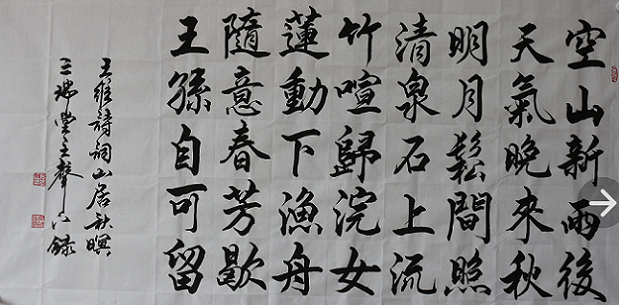 空山新雨後
天氣晚來秋
明月鬆間照
清泉石上流
竹喧歸浣女
蓮動下漁舟
隨意春芳歇
王孫自可留
王維詩詞山居秋暝
三瑞堂主聲錄